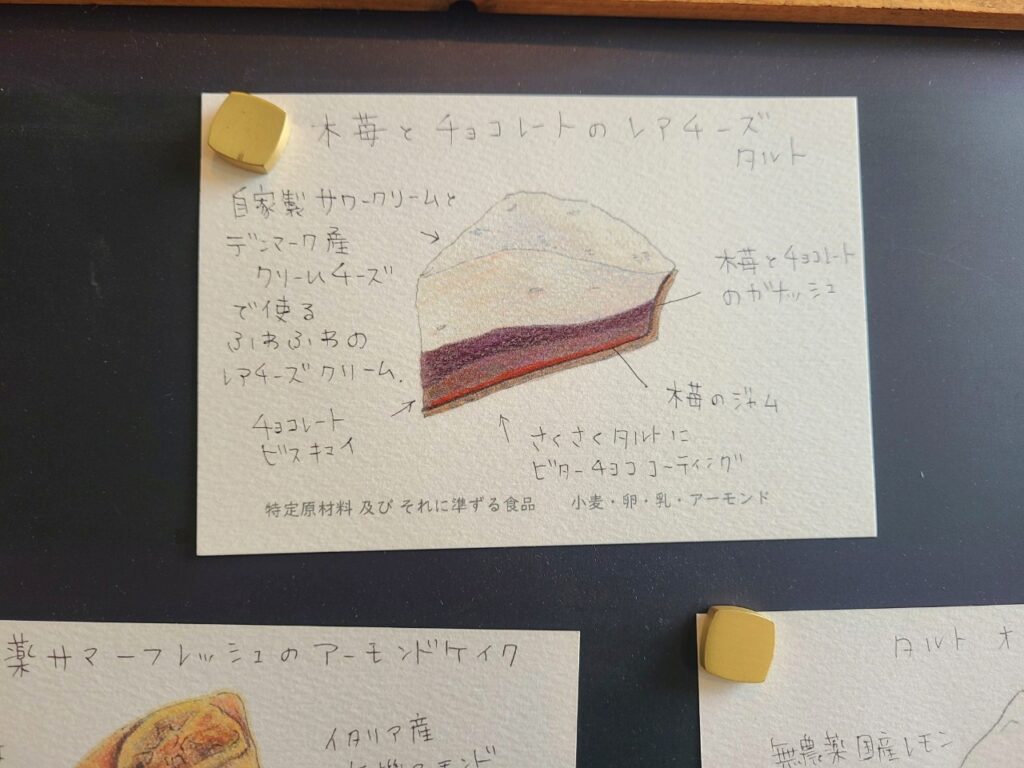 木苺とチョコレートのレアチーズ
タルト
自家製サワークリームと
デンマーク産
クリームチーズ
で使る
ふわふわの
レアチーズクリーム.
チョコレート
ビスキュイ
木苺とチョコレート
のガナッシュ
木苺のジャム
さくさくタルトに
ビターチョココーティング
特定原材料 及び それに準ずる食品 小麦・卵・乳・アーモンド
薬サマーフレッシュのアーモンドケイク
イタリア産
有機アーモンド
タルト オ
無農薬国産レモン